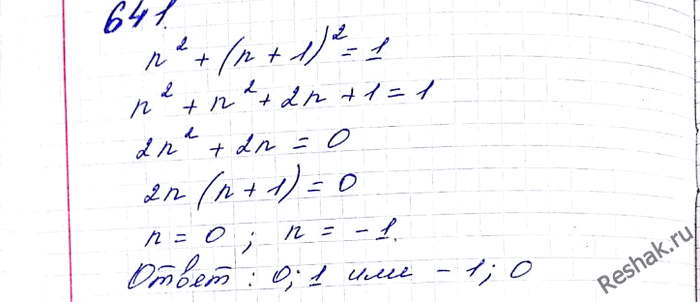 641.
n² + (n + 1)² = 1
n² + n² + 2n + 1 = 1
2n² + 2n = 0
2n (n + 1) = 0
n = 0 ; n = -1.
Ответ : 0; 1 или -1; 0
Reshak.ru